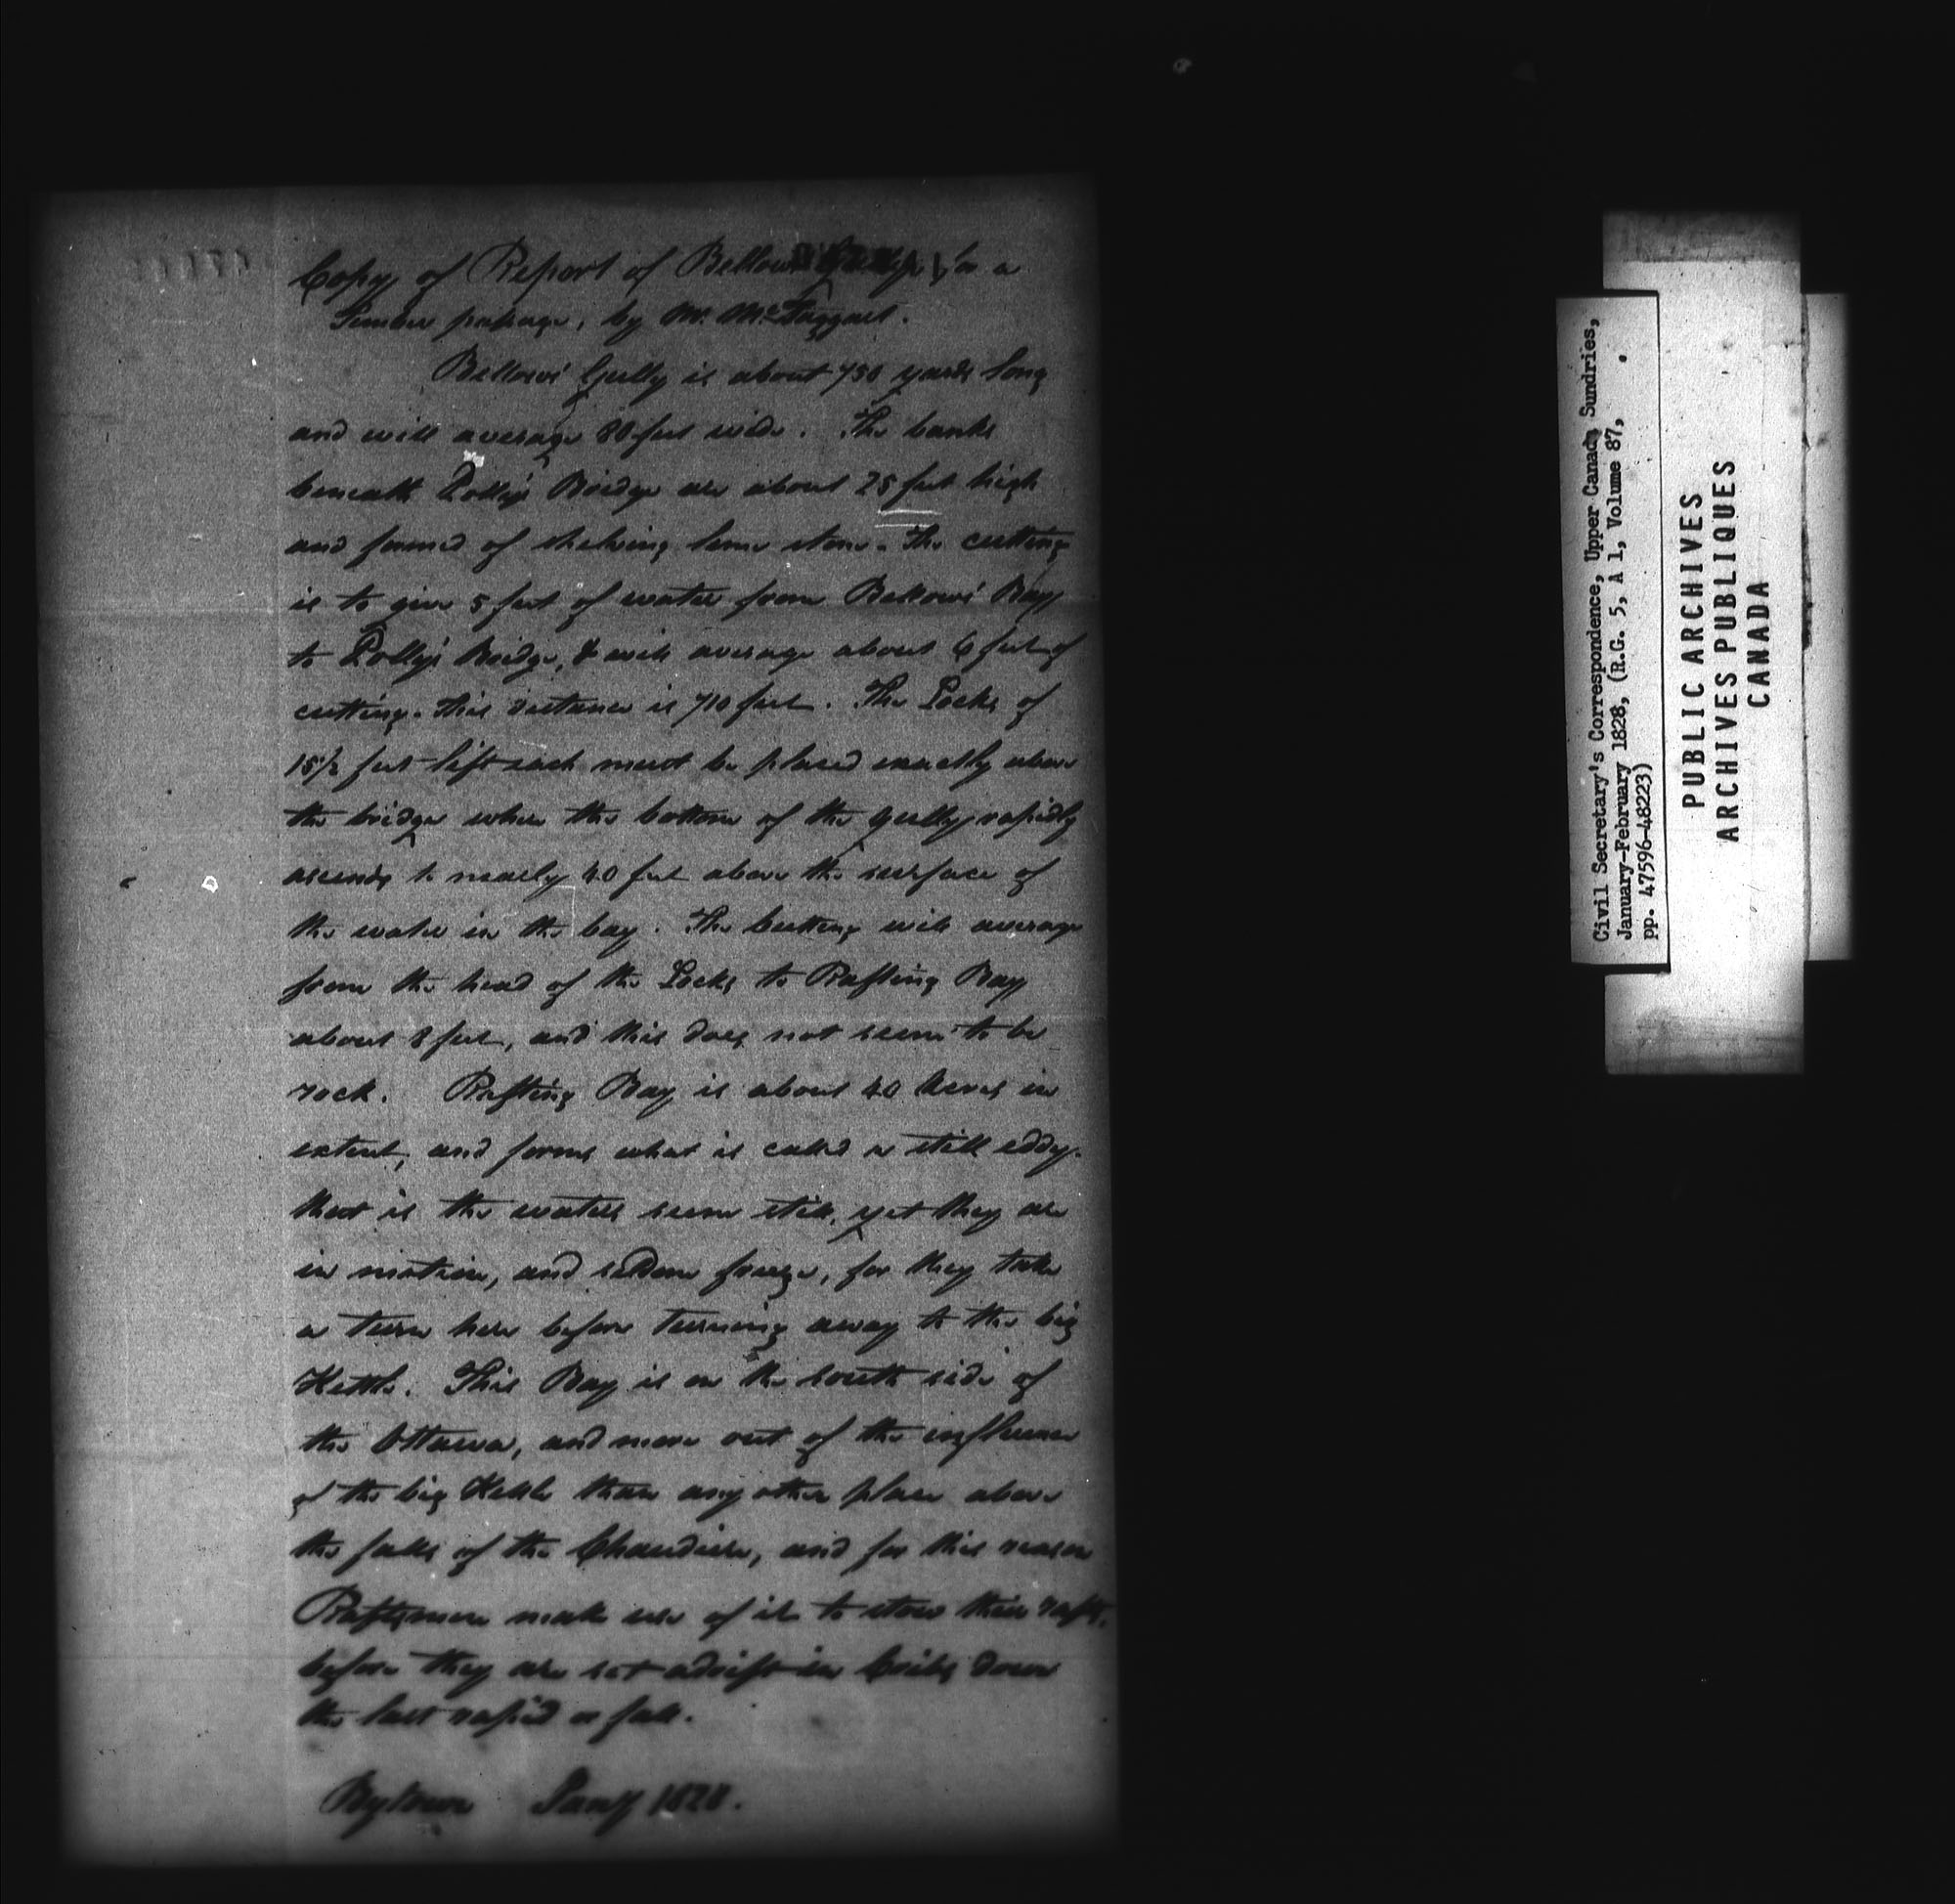 Copy of Report of Bellows' Gully, for a
Timber passage, by Mr. McTaggart.
Bellows' Gully is about 750 yards long
and will average 80 feet wide. The banks
beneath Polly's Bridge are about 25 feet high
and formed of shelving lime stone. The cutting
is to give 5 feet of water from Bellows' Bay
to Polly's Bridge, & will average about 6 feet of
cutting. This distance is 710 feet. The Locks of
15½ feet lift each must be placed exactly above
the bridge where the bottom of the gully rapidly
ascends to nearly 40 feet above the surface of
the water in the bay. The Cutting will average
from the head of the Locks to Rafting Bay
about 8 feet, and this does not seem to be
rock. Rafting Bay is about 40 Acres in
extent, and forms what is called a still eddy.
that is the waters seem still, yet they are
in motion, and seldom freeze, for they take
a turn here before turning away to the big
Kettle. This Bay is on the south side of
the Ottawa, and more out of the influence
of the big Kettle than any other place above
the falls of the Chaudiere, and for this reason
Raftsmen make use of it to stow their rafts,
before they are set adrift in Cribs down
the last rapid or fall.
Bytown Jany 1828.
Civil Secretary's Correspondence, Upper Canada Sundries,
January-February 1828, (R.G. 5, A 1, Volume 87,
pp. 47596-48223)
PUBLIC ARCHIVES
ARCHIVES PUBLIQUES
CANADA